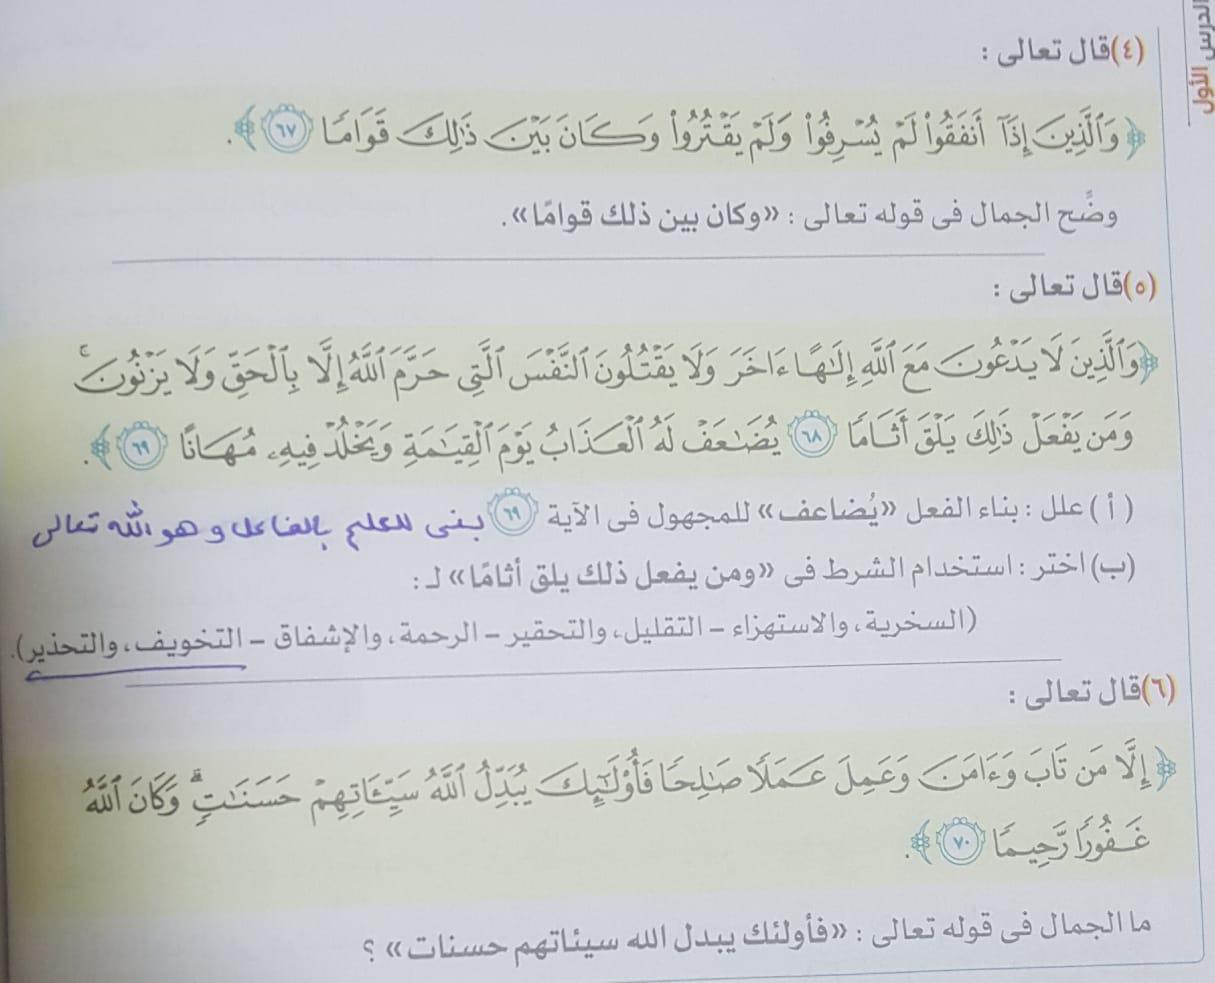 الدرس الأول
(٤) قال تعالى :
﴿ وَٱلَّذِينَ إِذَآ أَنفَقُوا۟ لَمْ يُسْرِفُوا۟ وَلَمْ يَقْتُرُوا۟ وَكَانَ بَيْنَ ذَٰلِكَ قَوَامًا ٦٧ ﴾.
وضَّح الجمال فى قوله تعالى : «وكان بين ذلك قوامًا».
(٥) قال تعالى :
﴿ وَٱلَّذِينَ لَا يَدْعُونَ مَعَ ٱللَّهِ إِلَٰهًا ءَاخَرَ وَلَا يَقْتُلُونَ ٱلنَّفْسَ ٱلَّتِى حَرَّمَ ٱللَّهُ إِلَّا بِٱلْحَقِّ وَلَا يَزْنُونَ ۚ
وَمَن يَفْعَلْ ذَٰلِكَ يَلْقَ أَثَامًا ٦٨ يُضَٰعَفْ لَهُ ٱلْعَذَابُ يَوْمَ ٱلْقِيَٰمَةِ وَيَخْلُدْ فِيهِۦ مُهَانًا ٦٩ ﴾.
(أ) علل : بناء الفعل «يُضاعف» للمجهول فى الآية ٦٩ بنى للعلم بالفاعل و هو الله تعالى
(ب) اختر : استخدام الشرط فى «ومن يفعل ذلك يلق أثامًا» لـ :
(السخرية، والاستهزاء – التقليل، والتحقير – الرحمة، والإشفاق – التخويف، والتحذير).
(٦) قال تعالى :
﴿ إِلَّا مَن تَابَ وَءَامَنَ وَعَمِلَ عَمَلًا صَٰلِحًا فَأُو۟لَٰٓئِكَ يُبَدِّلُ ٱللَّهُ سَيِّـَٔاتِهِمْ حَسَنَٰتٍ ۗ وَكَانَ ٱللَّهُ
غَفُورًا رَّحِيمًا ٧٠ ﴾.
ما الجمال فى قوله تعالى : «فأولئك يبدل الله سيئاتهم حسنات» ؟